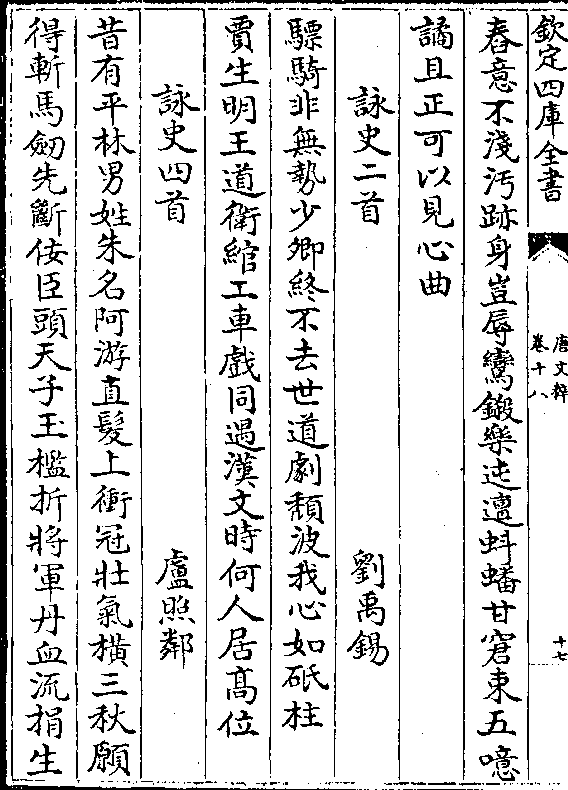 欽定四庫全書
唐文粹
卷十八
十七
舂意不淺汚跡身豈辱鸞鎩樂迍邅蚪蟠甘窘束五噫
譎且正可以見心曲
詠史二首
劉禹錫
驃騎非無勢少卿終不去世道劇頽波我心如砥柱
賈生明王道衛綰工車戲同遇漢文時何人居髙位
詠史四首
盧照鄰
昔有平林男姓朱名阿游直髮上衝冠壯氣横三秋願
得斬馬劒先斷佞臣頭天子玉檻折將軍丹血流捐生